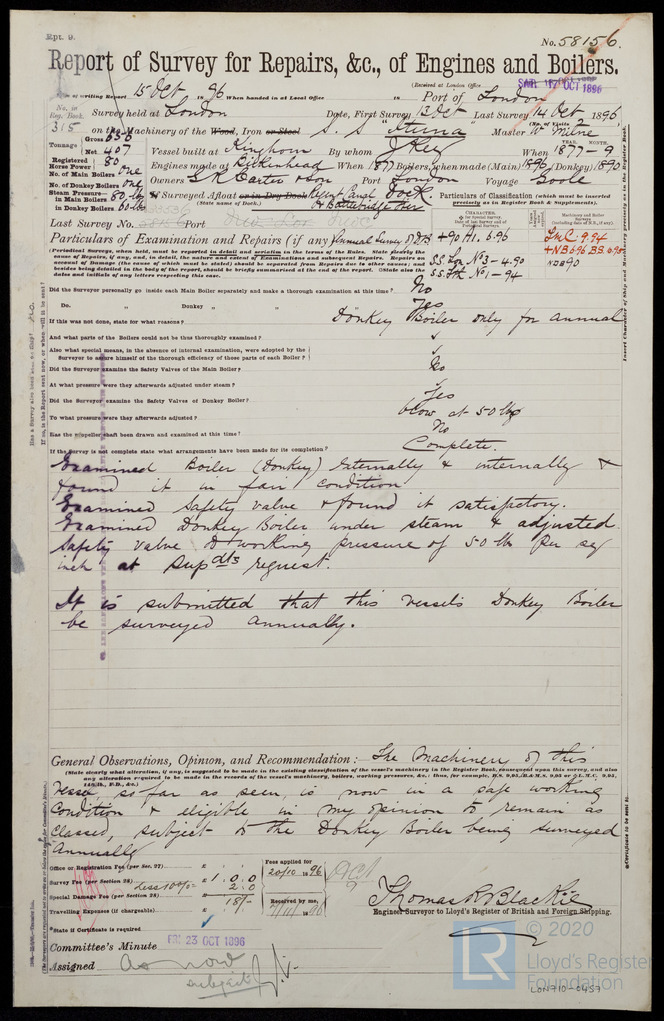 Rpt. 9.
No. 58156.
Report of Survey for Repairs, &c., of Engines and Boilers.
(Received at London Office SAT. 17 OCT 1896
Date of writing Report 15 Oct 1896 When handed in at Local Office 18 Port of London
No. in Reg. Book. Survey held at London Date, First Survey 13 Oct Last Survey 14 Oct 1896
(No. of Visits 2)
315 on the Machinery of the Wood, Iron or Steel S. S. "Etna" Master W Milne
Tonnage Gross 655 Net 407 Vessel built at Kinghorn By whom J Key When 1877-9
YEAR. MONTH.
Registered Horse Power 80 Engines made at Birkenhead When 1877 Boilers, when made (Main) 1896 (Donkey) 1890
No. of Main Boilers one
No. of Donkey Boilers one Owners G R Carter & Son Port London Voyage Goole
Steam Pressure in Main Boilers 80 lb If Surveyed Afloat or in Dry Dock Regent Canal Dock.
in Donkey Boilers 60 lb (State name of Dock.)
Particulars of Classification (which must be inserted precisely as in Register Book & Supplements).
Last Survey No. Port
Particulars of Examination and Repairs (if any) Annual Survey of DB +90 A1. 5.96
LMC 9.94
+NB 6.96 BS 6.95
S.S. Lon No 3-4.90 NDB90
S.S. Ith No 1-94
(Periodical Surveys, when held, must be reported in detail and seriatim in the terms of the Rules. State clearly the cause of Repairs, if any, and, in detail, the nature and extent of Examinations and subsequent Repairs. Repairs on account of Damage (the cause of which must be stated) should be separated from Repairs due to other causes; and besides being detailed in the body of the report, should be briefly summarised at the end of the report. (State also the dates and initials of any letters respecting this case.
Did the Surveyor personally go inside each Main Boiler separately and make a thorough examination at this time? No
Do. " Donkey " " " Yes
If this was not done, state for what reasons? Donkey Boiler only for annual
And what parts of the Boilers could not be thus thoroughly examined?
Also what special means, in the absence of internal examination, were adopted by the Surveyor to assure himself of the thorough efficiency of those parts of each Boiler?
Did the Surveyor examine the Safety Valves of the Main Boiler? No
At what pressure were they afterwards adjusted under steam?
Did the Surveyor examine the Safety Valves of Donkey Boiler? Yes
To what pressure were they afterwards adjusted? blow at 50 lbs
Has the propeller shaft been drawn and examined at this time? No
If the Survey is not complete state what arrangements have been made for its completion? Complete.
Examined Boiler (Donkey) Externally & internally &
found it in fair condition
Examined Safety valve & found it satisfactory.
Examined Donkey Boiler under steam & adjusted
Safety valve to working pressure of 50 lb per sq
inch at Supdts request.
It is submitted that this vessels Donkey Boiler
be surveyed annually.
General Observations, Opinion, and Recommendation: The Machinery of this
(State clearly what alteration, if any, is suggested to be made in the existing classification of the vessel's machinery in the Register Book, consequent upon this survey, and also any alteration required to be made in the records of the vessel's machinery, boilers, working pressures, &c.: thus, for example, B.S. 9,95, B.&M.S. 9,95 or L.M.C. 9,95, 140 lb., F.D., &c.)
Vessel, so far as seen, is now in a safe working
Condition & eligible in my opinion to remain as
Classed, subject to the Donkey Boiler being surveyed
Annually
Office or Registration Fee (per Sec. 27).. £ : :
Survey Fee (per Section 28).. £ 1 : 0 : 0
less 10% 2 : 0
Special Damage Fee (per Section 28) £ 18/-
Travelling Expenses (if chargeable). £ : :
Fees applied for 20/10 1896
Received by me,
Oct
Thomas R Blackie
Engineer Surveyor to Lloyd's Register of British and Foreign Shipping.
*State if Certificate is required
Committee's Minute FRI 23 OCT 1896
Assigned As now
subject
© 2020
LR
Lloyd's Register
Foundation
LON710-0457